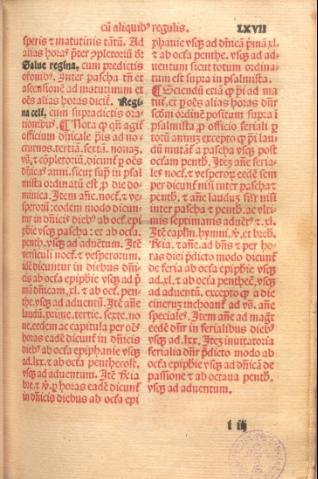 cū aliquibꝰ regulis. LXVII
speris ⁊ matutinis tātū. Ad
alias horas p̄ter ꝯpletoriū &
Salue regina, cum predictis
orōnibꝰ. Inter pascha tn̄ et
ascensionē ad matutinum et
oēs alias horas dicit̄. Regi
na celi, cum supradictis ora
tionibus. ¶ Nota ꝙ qn̄ agit̄
officium dn̄icale p̄us ad no
cturnos. tertiā. sextā. nonaꝫ.
vs̄. ⁊ cōpletoriū, dicunt̄ ꝑ oēs
dn̄icas anni. sicut sup̄ in psal
mista ordinatū est, ꝓ die do-
minica. Item añe. nocē. ⁊ ve-
speroꝝ: eodēm modo dicun-
tur in dn̄icis diebꝰ ab oct̄. epi
phie vsqꝫ pascha: et ab octa.
penth. vsqꝫ ad aduētum. Itē
versiculi noct̄. ⁊ vesperorum.
idē dicuntur in diebus dn̄i-
cis ab octa epiphie vsqꝫ ad p̄
mā dn̄icam. xl. ⁊ ab oct̄. pen-
the. vsqꝫ ad aduentū. Itē añe
laudū. prime. tertie. sexte. no
ne. eedem ac capitula per oēs
horas eadē dicunt̄ in dn̄icis
diebꝰ ab octa epiphanie vsqꝫ
ad. lxx. ⁊ ab octa penthecost̄.
vsqꝫ ad aduentum. Itē
⁊ ꝑ horas eadē dicunt̄
in dn̄icis diebus ab octa epi
phanie vsqꝫ ad dn̄icā p̄mā xl.
⁊ ab octa penthe. vsqꝫ ad ad-
uentum sicut totum ordina-
tum est supra in psalmista.
¶ Sciendū etiā ꝙ p̄i ad ma
tut̄. et ꝑ oēs alias horas dn̄r
scdm̄ ordinē positum supra ī
psalmista, ꝓ officio feriali ꝑ
totū annū: excepto ꝙ p̄i lau-
dū mutāt̄ a pascha vsqꝫ post
octam penth. Itez añe feria-
les noct̄. ⁊ vesperoꝝ eedē sem
per dicunt̄ nisi inter pascha ⁊
penth. ⁊ añe laudus sr̄ nisi
inter pascha ⁊ penth. ac vlti-
mis septimanis aduēt̄ ⁊. xl.
Itē capl̄m. hymni. v̄. et brebꝰ.
⁊ añe. ad bn̄s ⁊ per ho-
ras diei p̄dicto modo dicunt̄
de feria ab octa epiphie vsqꝫ
ad. xl. ⁊ ab octa penthec̄. vsqꝫ
ad aduentū. excepto ꝙ a die
cinerꝝ inchoant̄ ad vs̄. añe
speciales. Item añe ad mag̅t̄
eedē dn̄r in ferialibus diebꝰ
vsqꝫ ad. lxx. Itez inuitatoria
ferialia dn̄r p̄dicto modo ab
octa epiphie vsqꝫ ad dn̄icā de
passionē ⁊ ab octaua penth.
vsqꝫ ad aduentum.
l iij